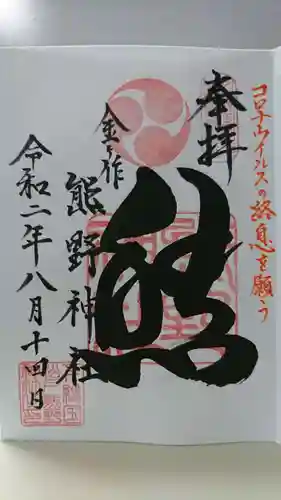 コロナウイルスの終息を願う
奉拝
熊
金ヶ作
熊野神社
令和二年八月十四日